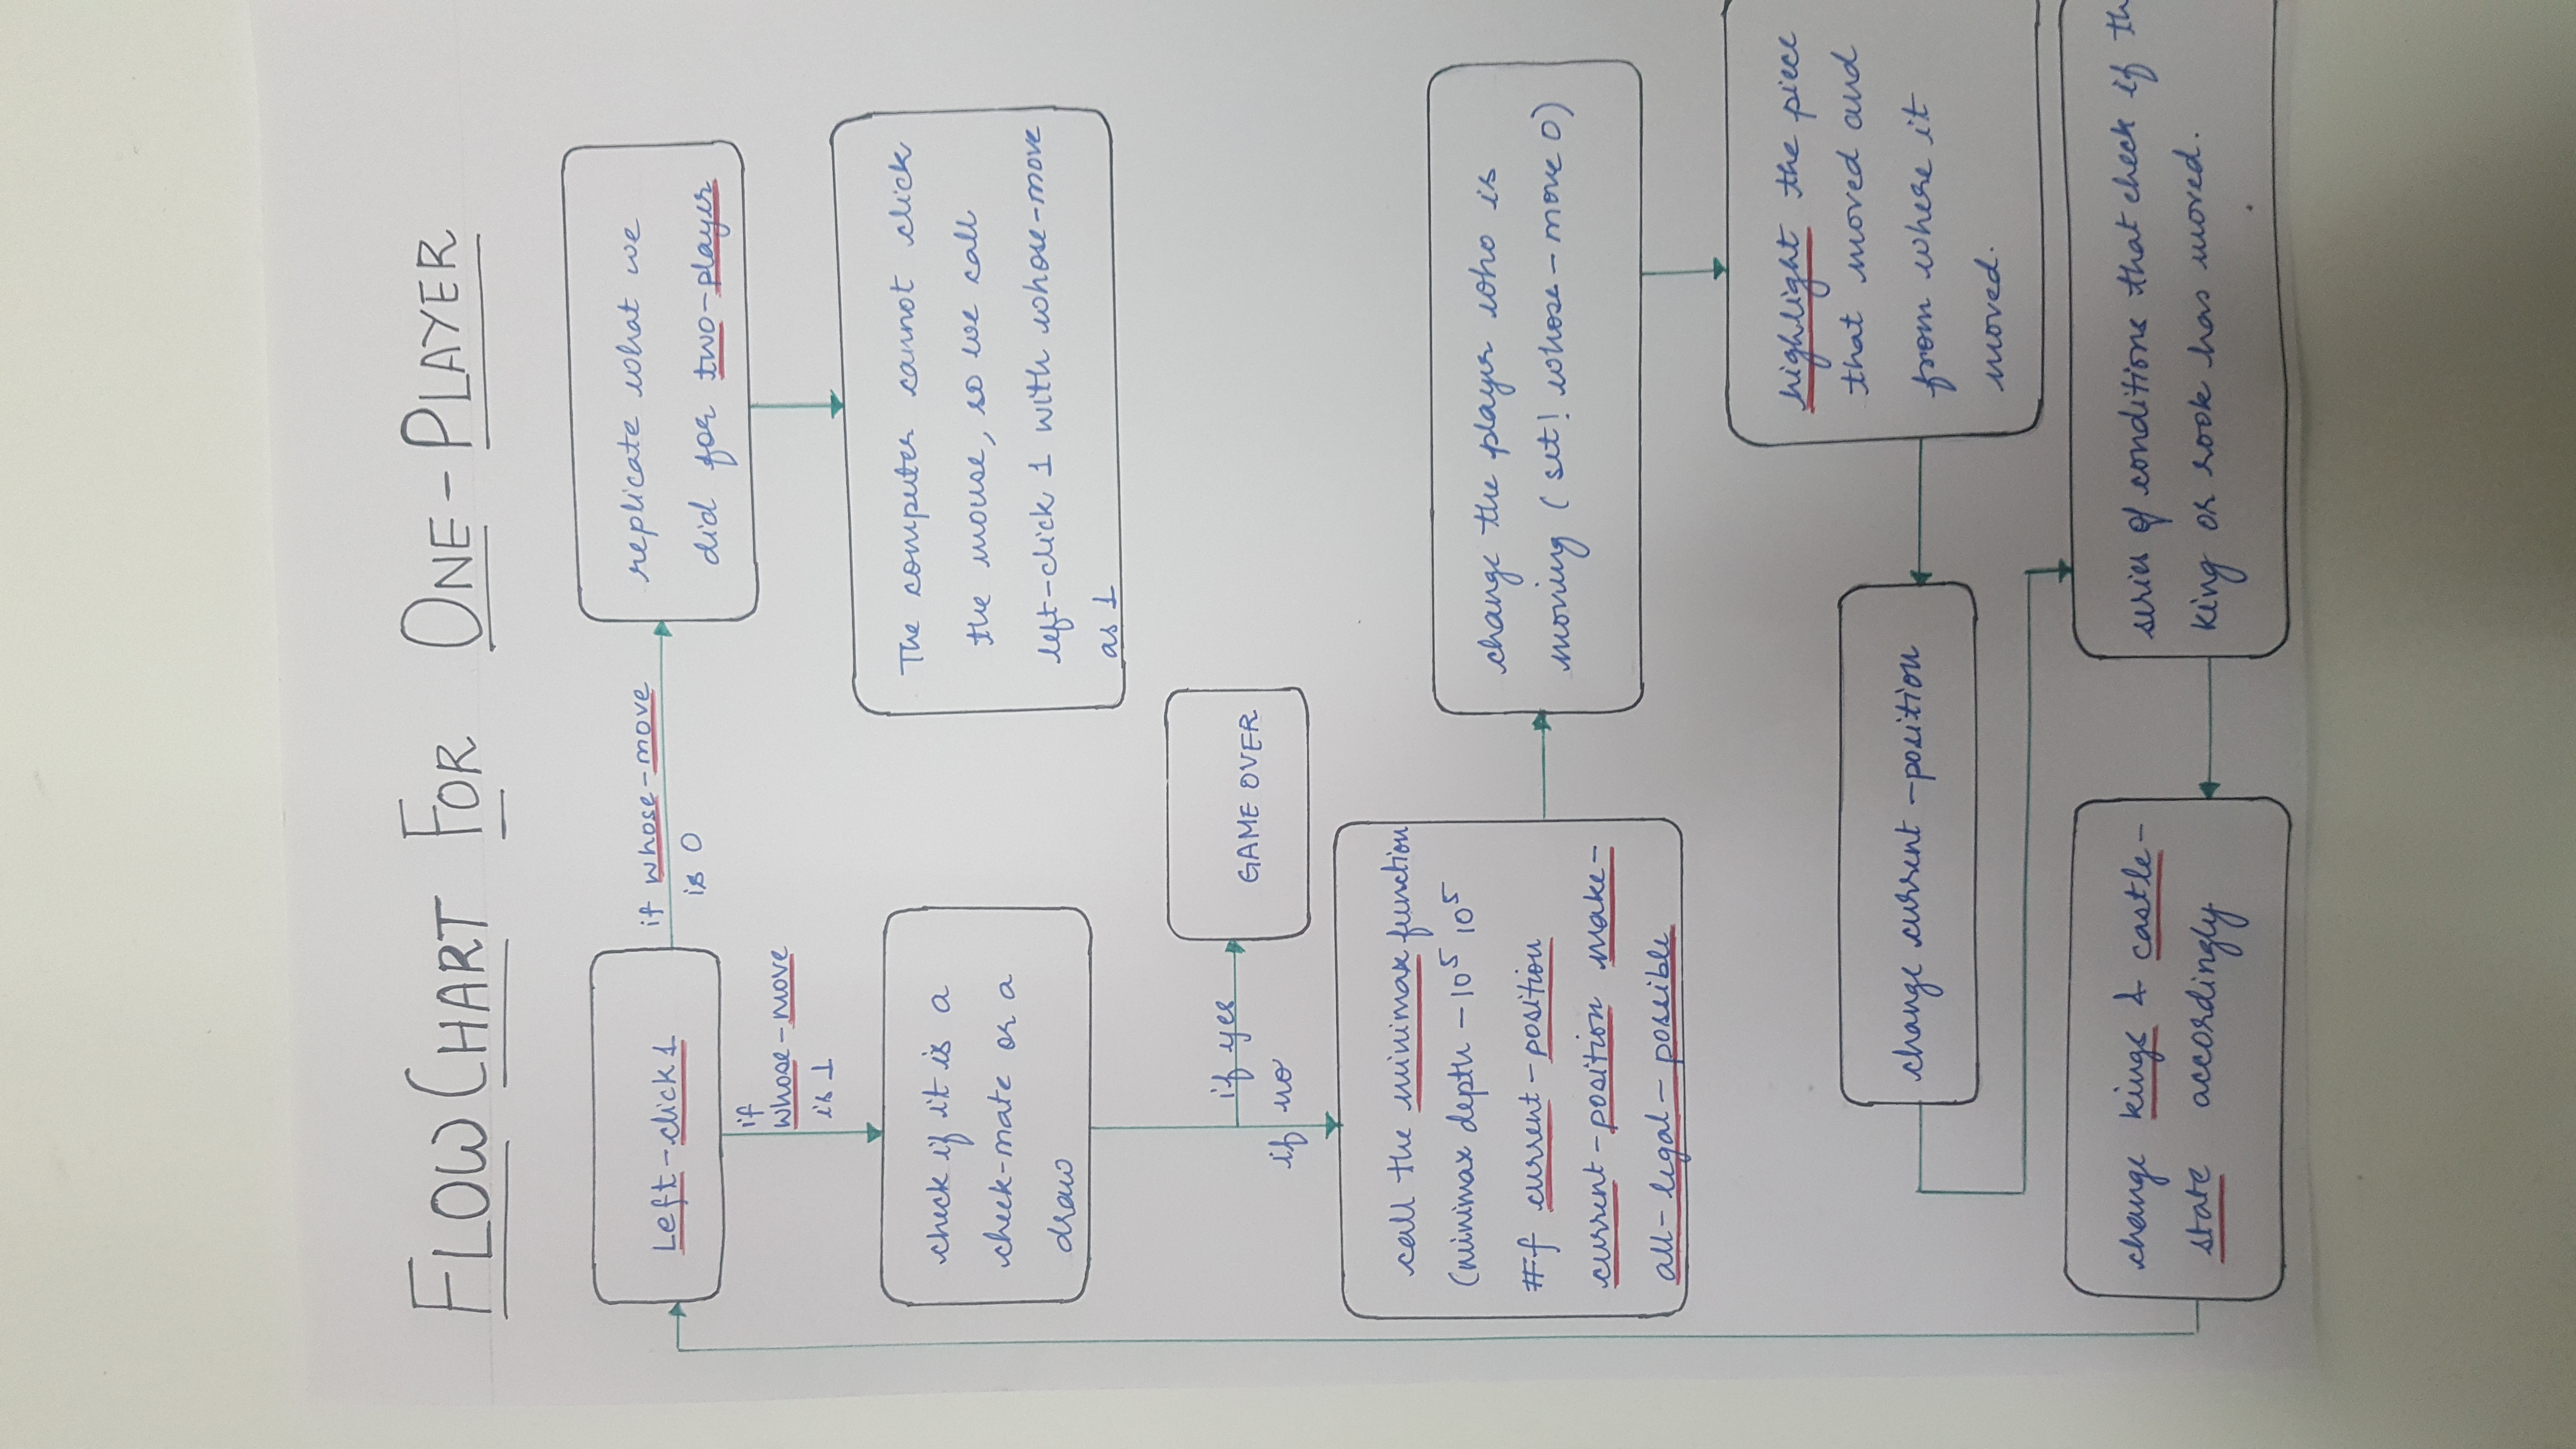 FLOW CHART FOR ONE-PLAYER
Left-click 1
if whose-move
is 0
replicate what we
did for two-player
if
whose-move
is 1
check if it is a
check-mate or a
draw
The computer cannot click
the mouse, so we call
left-click 1 with whose-move
as 1
if yes
GAME OVER
if no
call the minimax function
(minimax depth -10⁵ 10⁵
#f current-position
current-position make-
all-legal-possible
change the player who is
moving (set! whose-move 0)
highlight the piece
that moved and
from where it
moved.
change current-position
series of conditions that check if th
king or rook has moved.
change kings & castle-
state accordingly